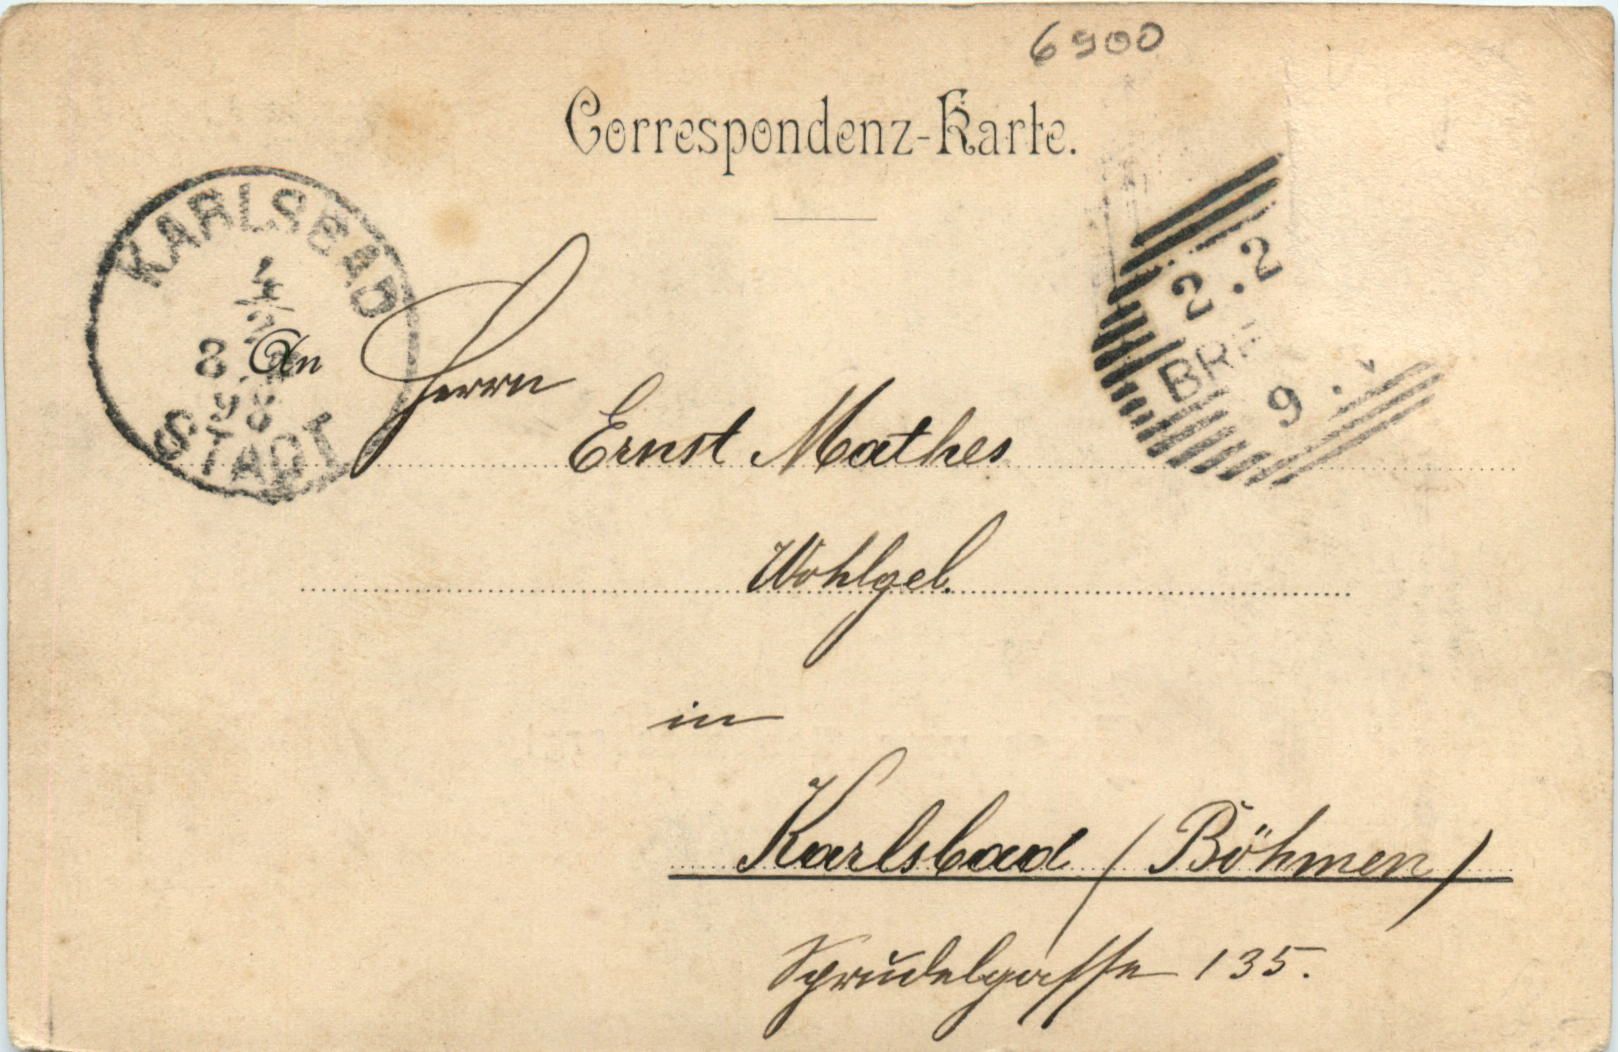 6900
Correspondenz-Karte.
KARLSBAD
4/2
8
98
STADT
2.2
9
An Herrn
Ernst Mathes
Wohlgeb.
in
Karlsbad (Böhmen)
Sprudelgasse 135.